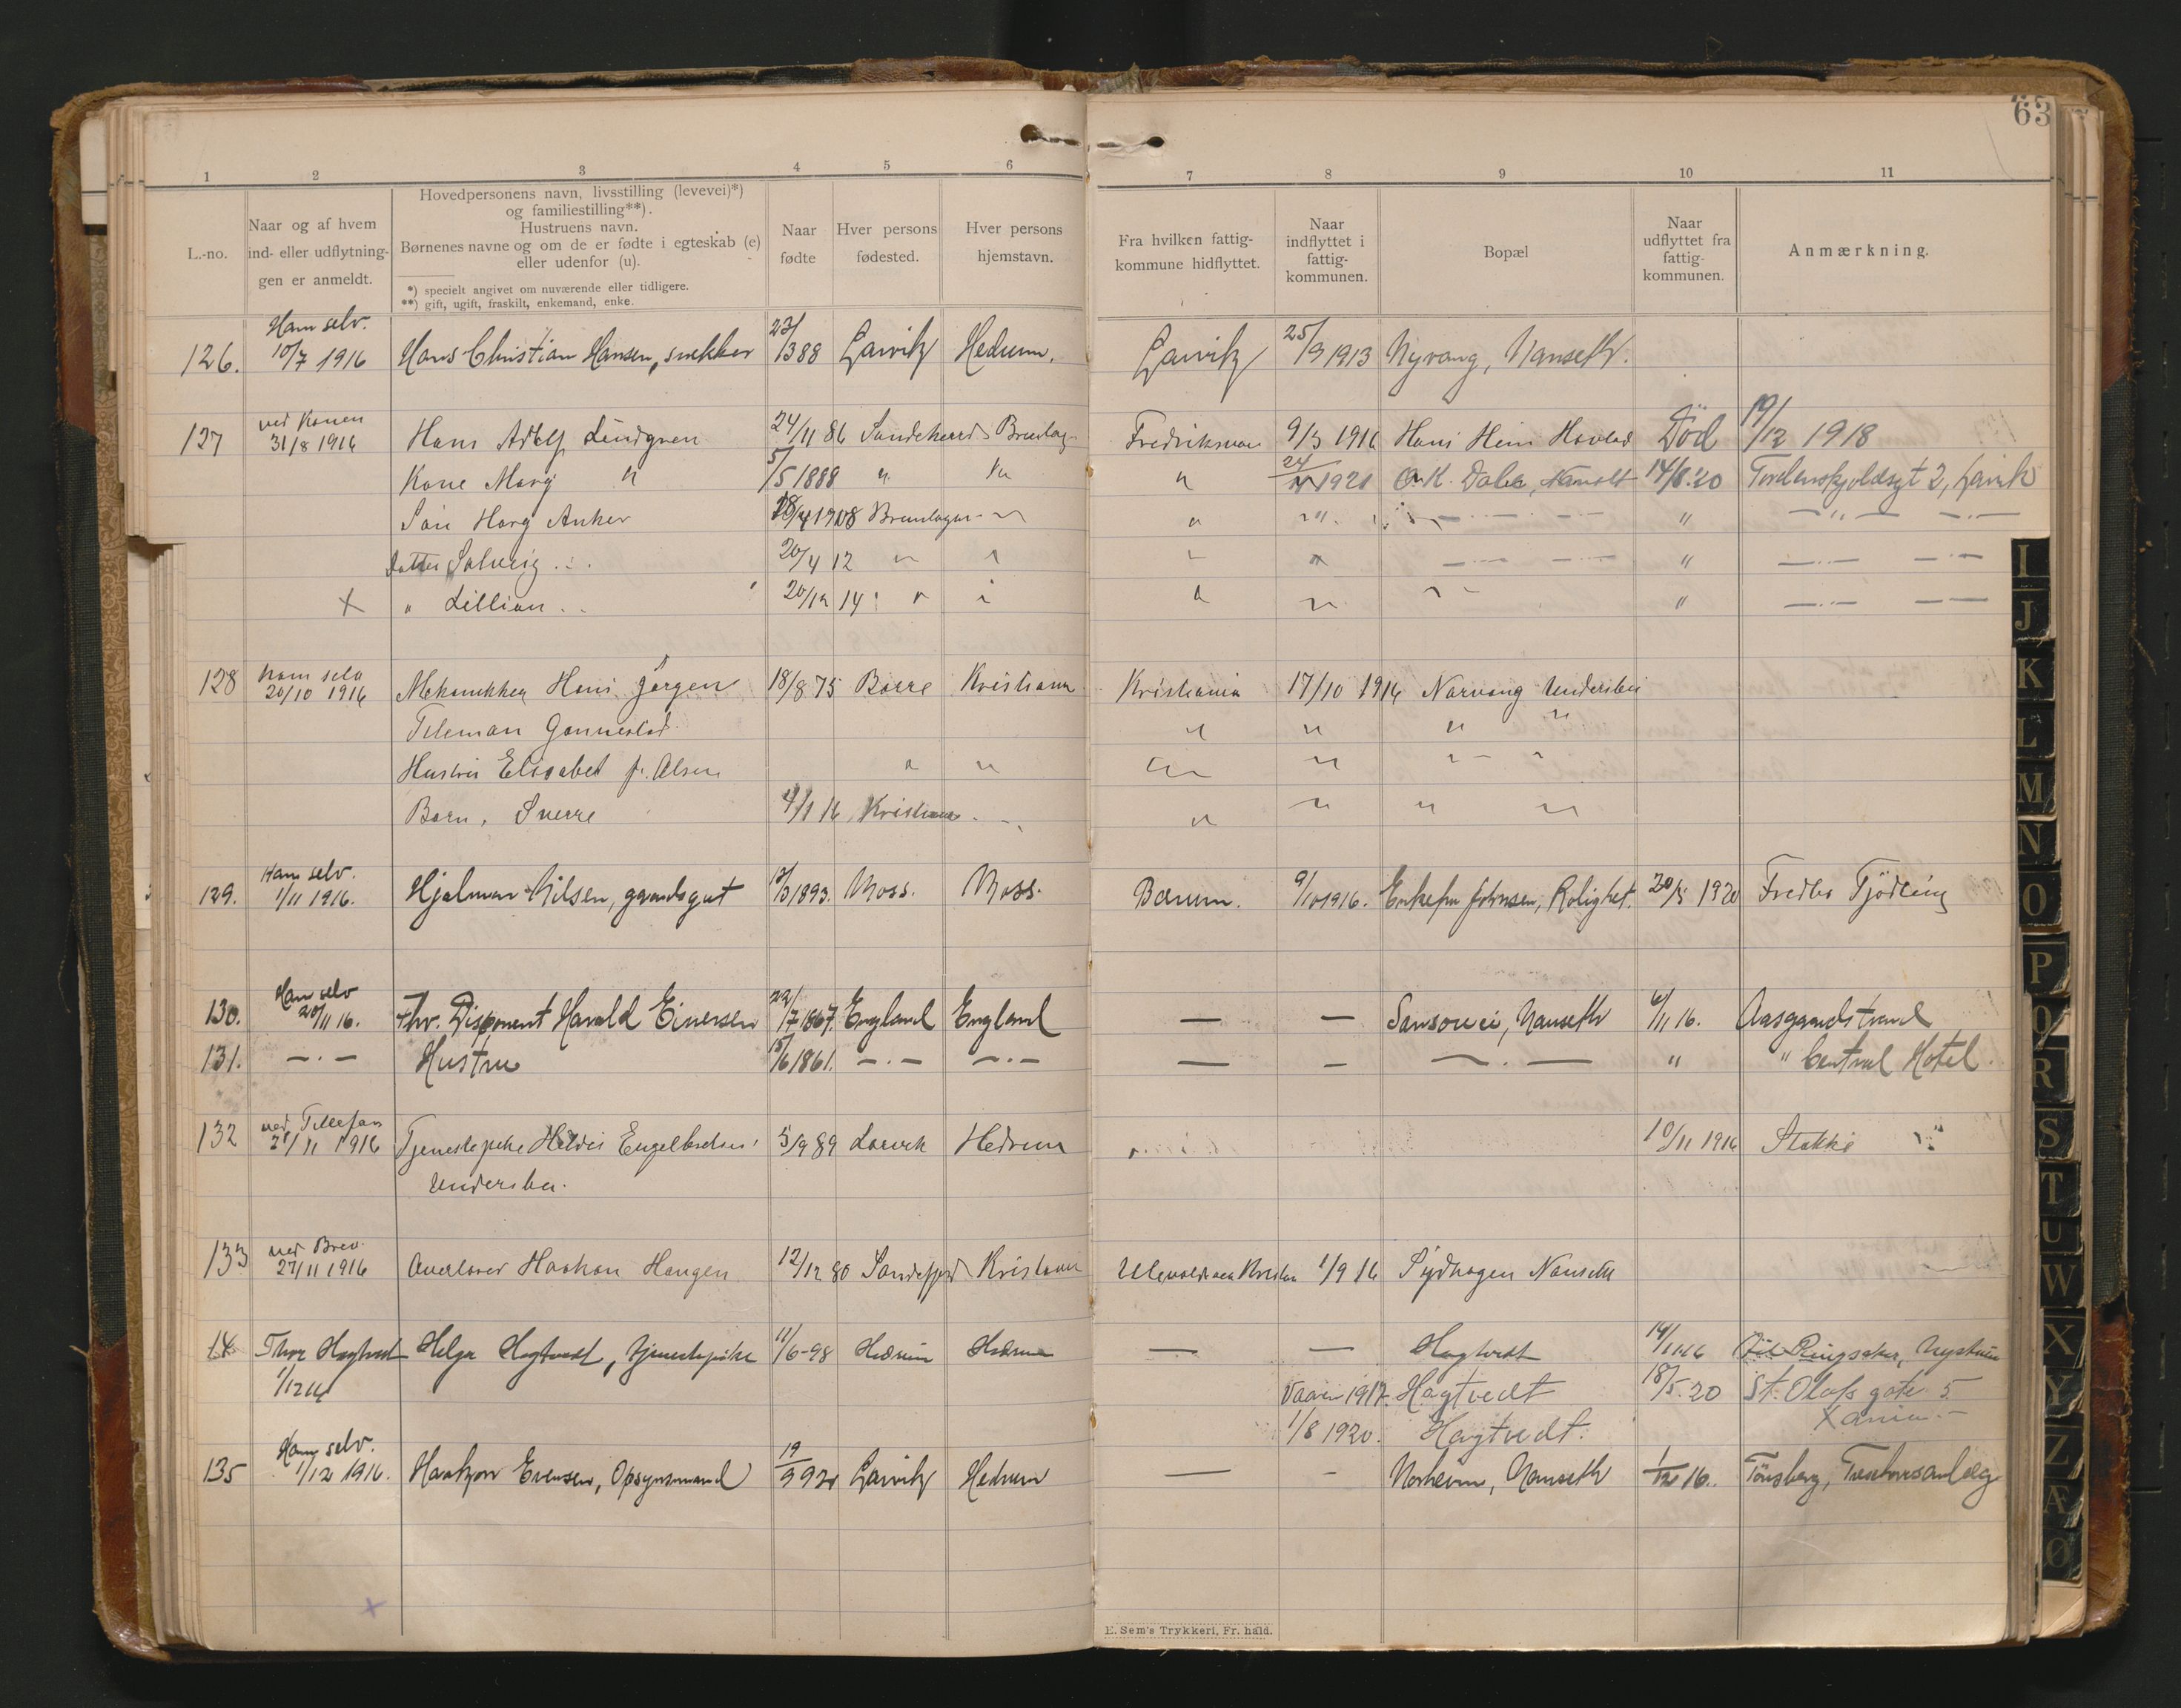 63
1 2 3 4 5 6 7 8 9 10 11
L.-no.
Naar og af hvem
ind- eller udflytning-
gen er anmeldt.
Hovedpersonens navn, livsstilling (levevei)*)
og familiestilling**).
Hustruens navn.
Børnenes navne og om de er fødte i egteskab (e)
eller udenfor (u).
*) specielt angivet om nuværende eller tidligere.
**) gift, ugift, fraskilt, enkemand, enke.
Naar
fødte
Hver persons
fødested.
Hver persons
hjemstavn.
Fra hvilken fattig-
kommune hidflyttet.
Naar
indflyttet i
fattig-
kommunen.
Bopæl
Naar
udflyttet fra
fattig-
kommunen.
Anmærkning.
Ham selv.
126. 10/7 1916 Hans Christian Hansen, snekker 23/1388 Larvik Hedrum. Larvik 25/9 1913 Nyvang, Nanseth.
ved Konen
127 31/8 1916 Hans Adolf Lindgren 24/11 86 Sandeherred 9/3 1916 Hans Hovland Død 19/12 1918
Kone Marg " 5/5 1888 " " " 24/ 1921 O.K. 14/8 20 Tordenskjoldsgt 2, Larvik
Søn Harg Anker 1908 " " — " —
Datter Solveig 20/4 12 " " " " —
x " Lillian 20/12 14 " " " " —
Ham selv
128 20/10 1916 Mekanikker Hans Jørgen 18/8 75 Borre Kristiania Kristiania 17/10 1916 Norvang Undersbo
Tileman Gannestad " " " "
Hustru Elisabet f. Olsen " " " " "
Barn, Sverre 4/1 16 Kristiania " " " "
Ham selv.
129. 1/11 1916. Hjalmar Nilsen, gaardsgut 1893. Moss. Moss. Bærum. 9/10 1916. Enkefru Johnsen, Rolighet. 20/5 1920 Fredbo Tjödling
Ham selv
130. 20/11 16. Fhv. Disponent Harald Einersen 22/7 1867. England England — — Sansouci, Nanseth 6/11 16. Aasgaardstrand
131. — . — Hustru 15/6 1861. — . — — . — — — — . — " " Central Hotel.
ved Tellefon
132 28/11 1916 Tjenestepike Engelbretsen 3/9 89 Larvik Hedrum 10/11 1916 Stokke
Undersbo.
ved Brev.
133 27/11 1916 Haakon Haugen 12/12 80 Sandefjord Kristiania 1/9 16 Sydhagen Nanseth
Thor Hagtvedt Helga Hagtvedt, tjenestepike 11/6-98 Hedrum Hedrum — — Hagtvedt Ringsaker,
1/12 16 Vaaren 1917. Hagtvedt 18/5. 20 St. Olafs gate 5
1/8 1920. Hagtvedt. Xania.
Ham selv.
135 1/12 1916. Haakon Evensen, Opsynsmand 19/9 92 Larvik Hedrum — — Norheim, Nanseth 1/12 16. Tönsberg,
E. Sem's Trykkeri, Fr. hald.
I
J
K
L
M
N
O
P
Q
R
S
T
U
W
X
Y
Z
Æ
Ø